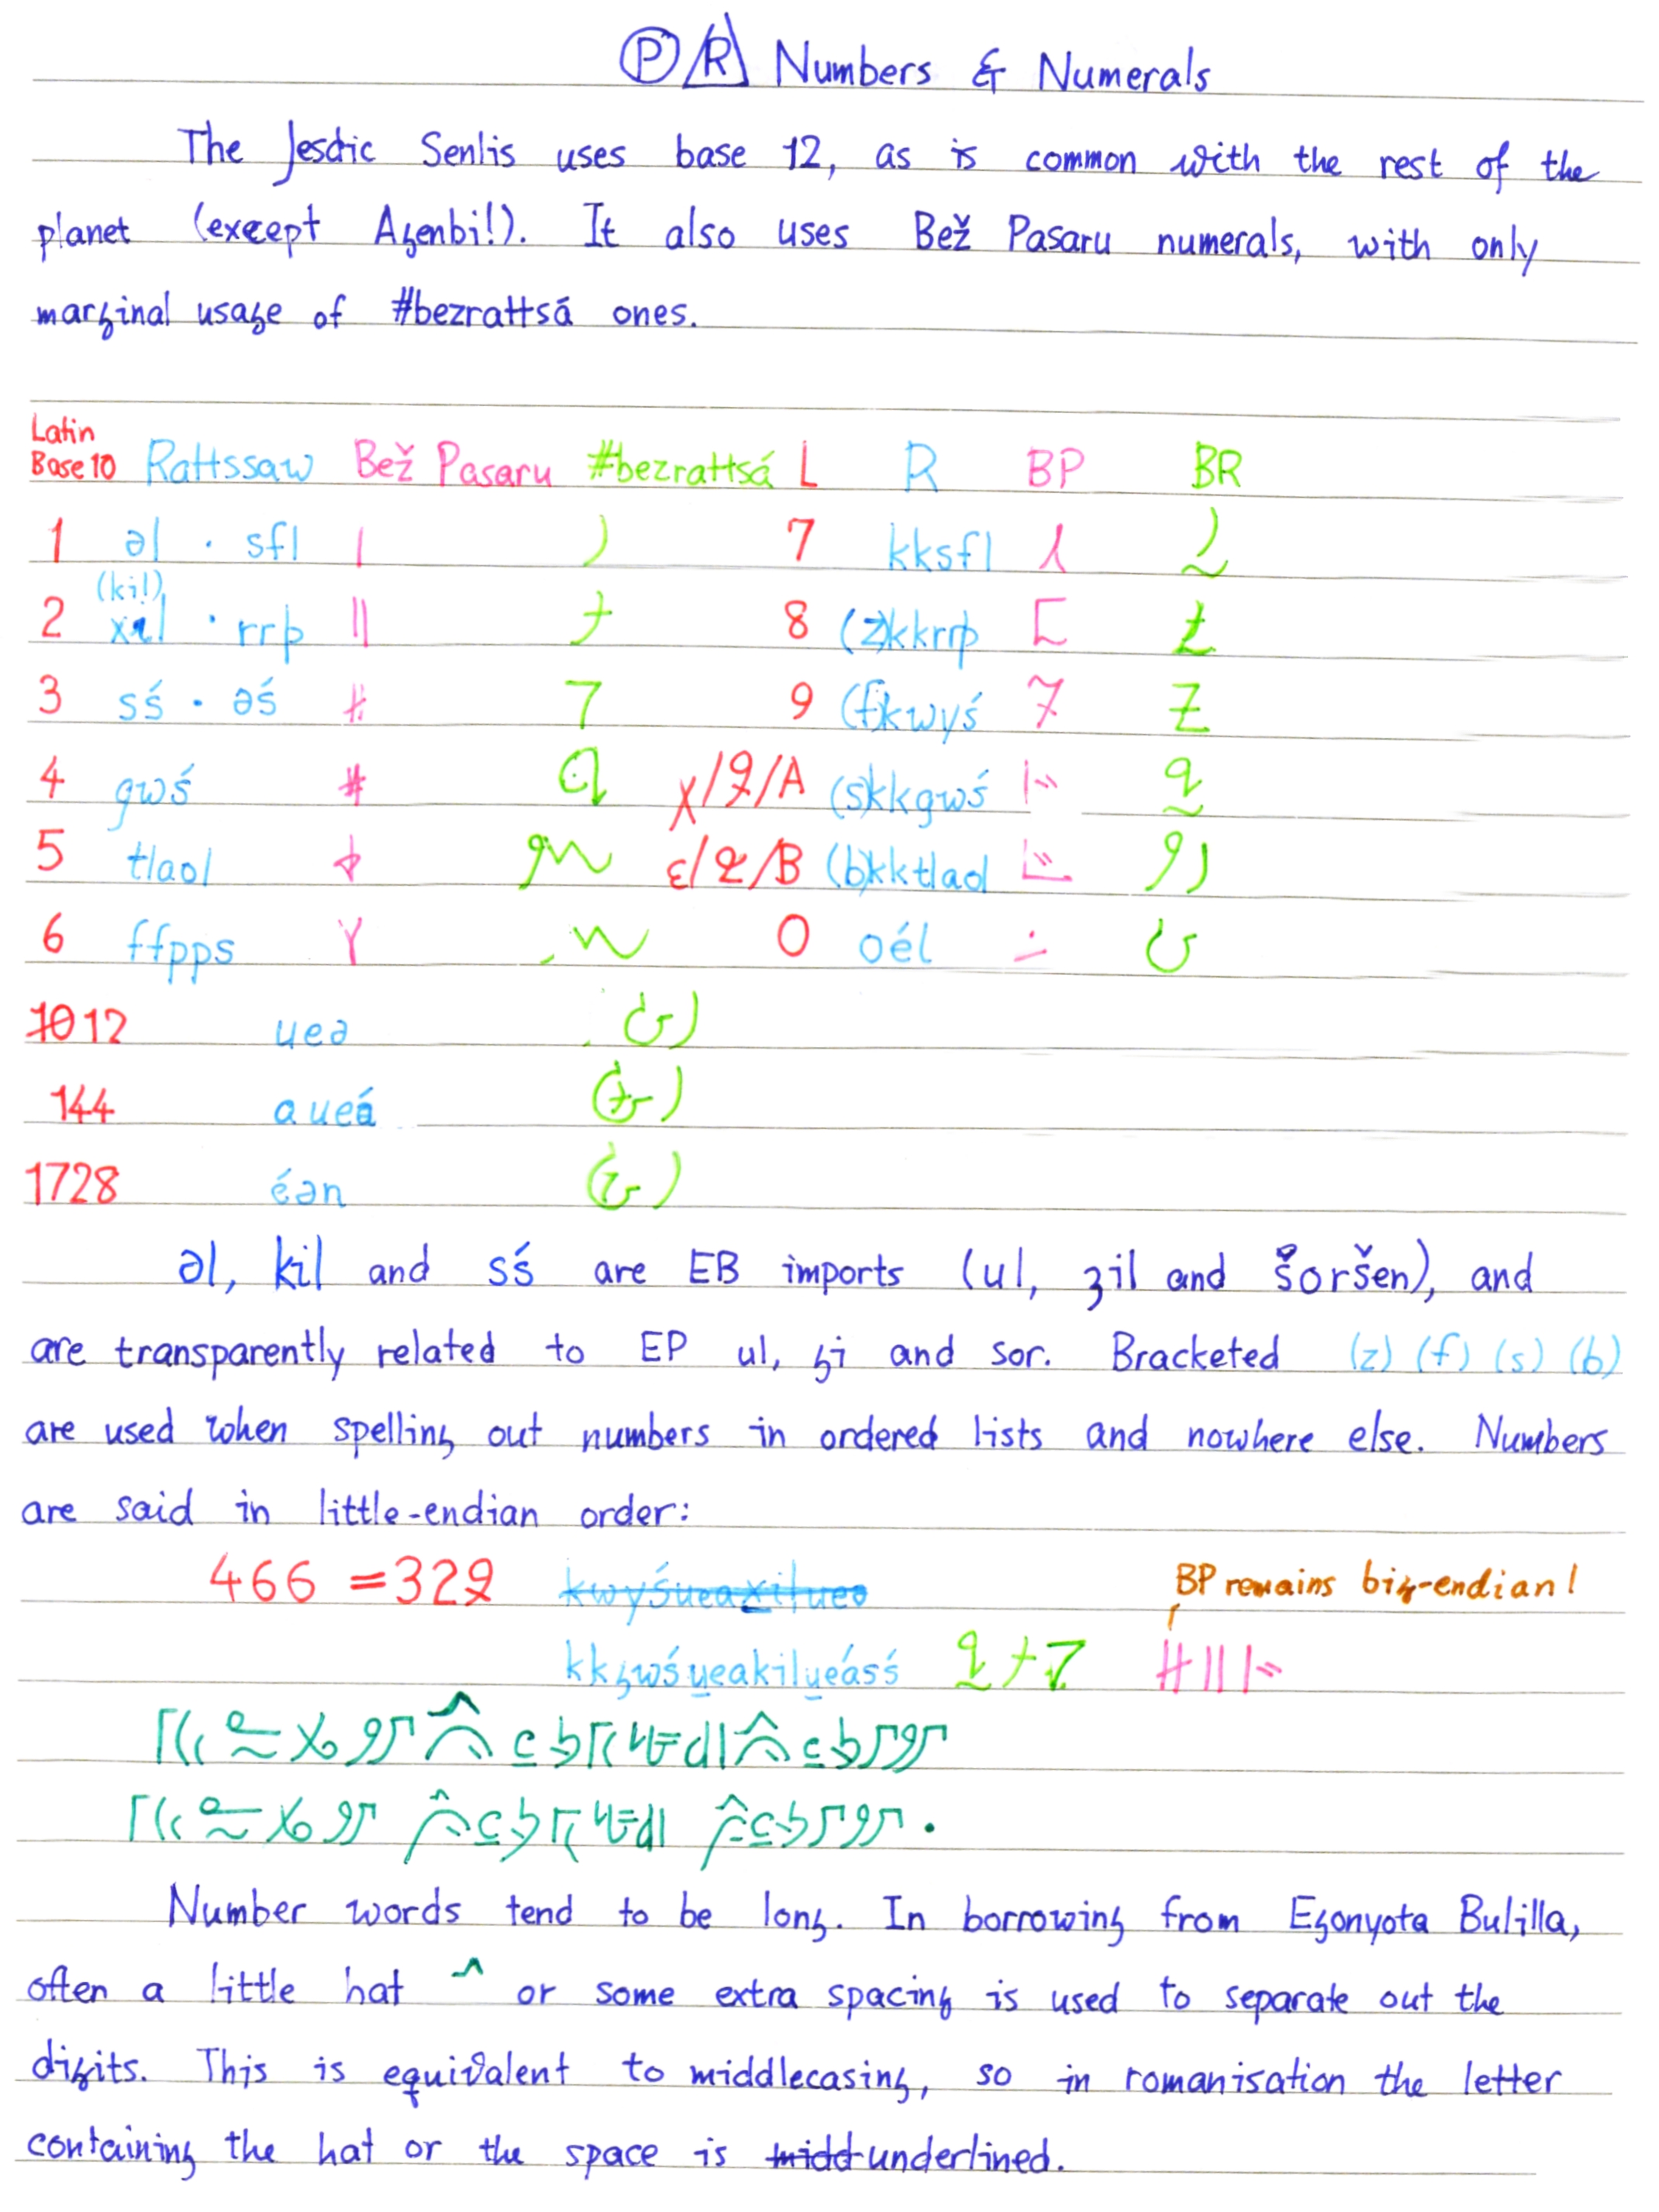 Ⓟ R Numbers & Numerals
The Jesdic Senlis uses base 12, as is common with the rest of the
planet (except Aȝenbi!). It also uses Bež Pasaru numerals, with only
marȝinal usaȝe of #bezrattsá ones.
Latin Base 10 Rattssaw Bež Pasaru #bezrattsá L R BP BR
1 əl · sfl 7 kksfl
(kil)
2 xıl · rrþ 8 (z)kkrrþ
3 sś · əś 9 (f)kwyś
4 gwś χ/ /A (s)kkgwś
5 tlaol ε/ /B (b)kktlaol
6 ffpps 0 oél
12 ueə
144 aueá
1728 éən
əl, kil and sś are EB imports (ul, ʒil and šoršen), and
are transparently related to EP ul, ȝi and sor. Bracketed (z) (f) (s) (b)
are used when spellinȝ out numbers in ordered lists and nowhere else. Numbers
are said in little-endian order:
466 = 32 BP remains biȝ-endian!
kkȝwśueakilueásś
Number words tend to be lonȝ. In borrowinȝ from Eȝonyota Bulilla,
often a little hat ^ or some extra spacinȝ is used to separate out the
diȝits. This is equivalent to middlecasinȝ, so in romanisation the letter
containinȝ the hat or the space is underlined.